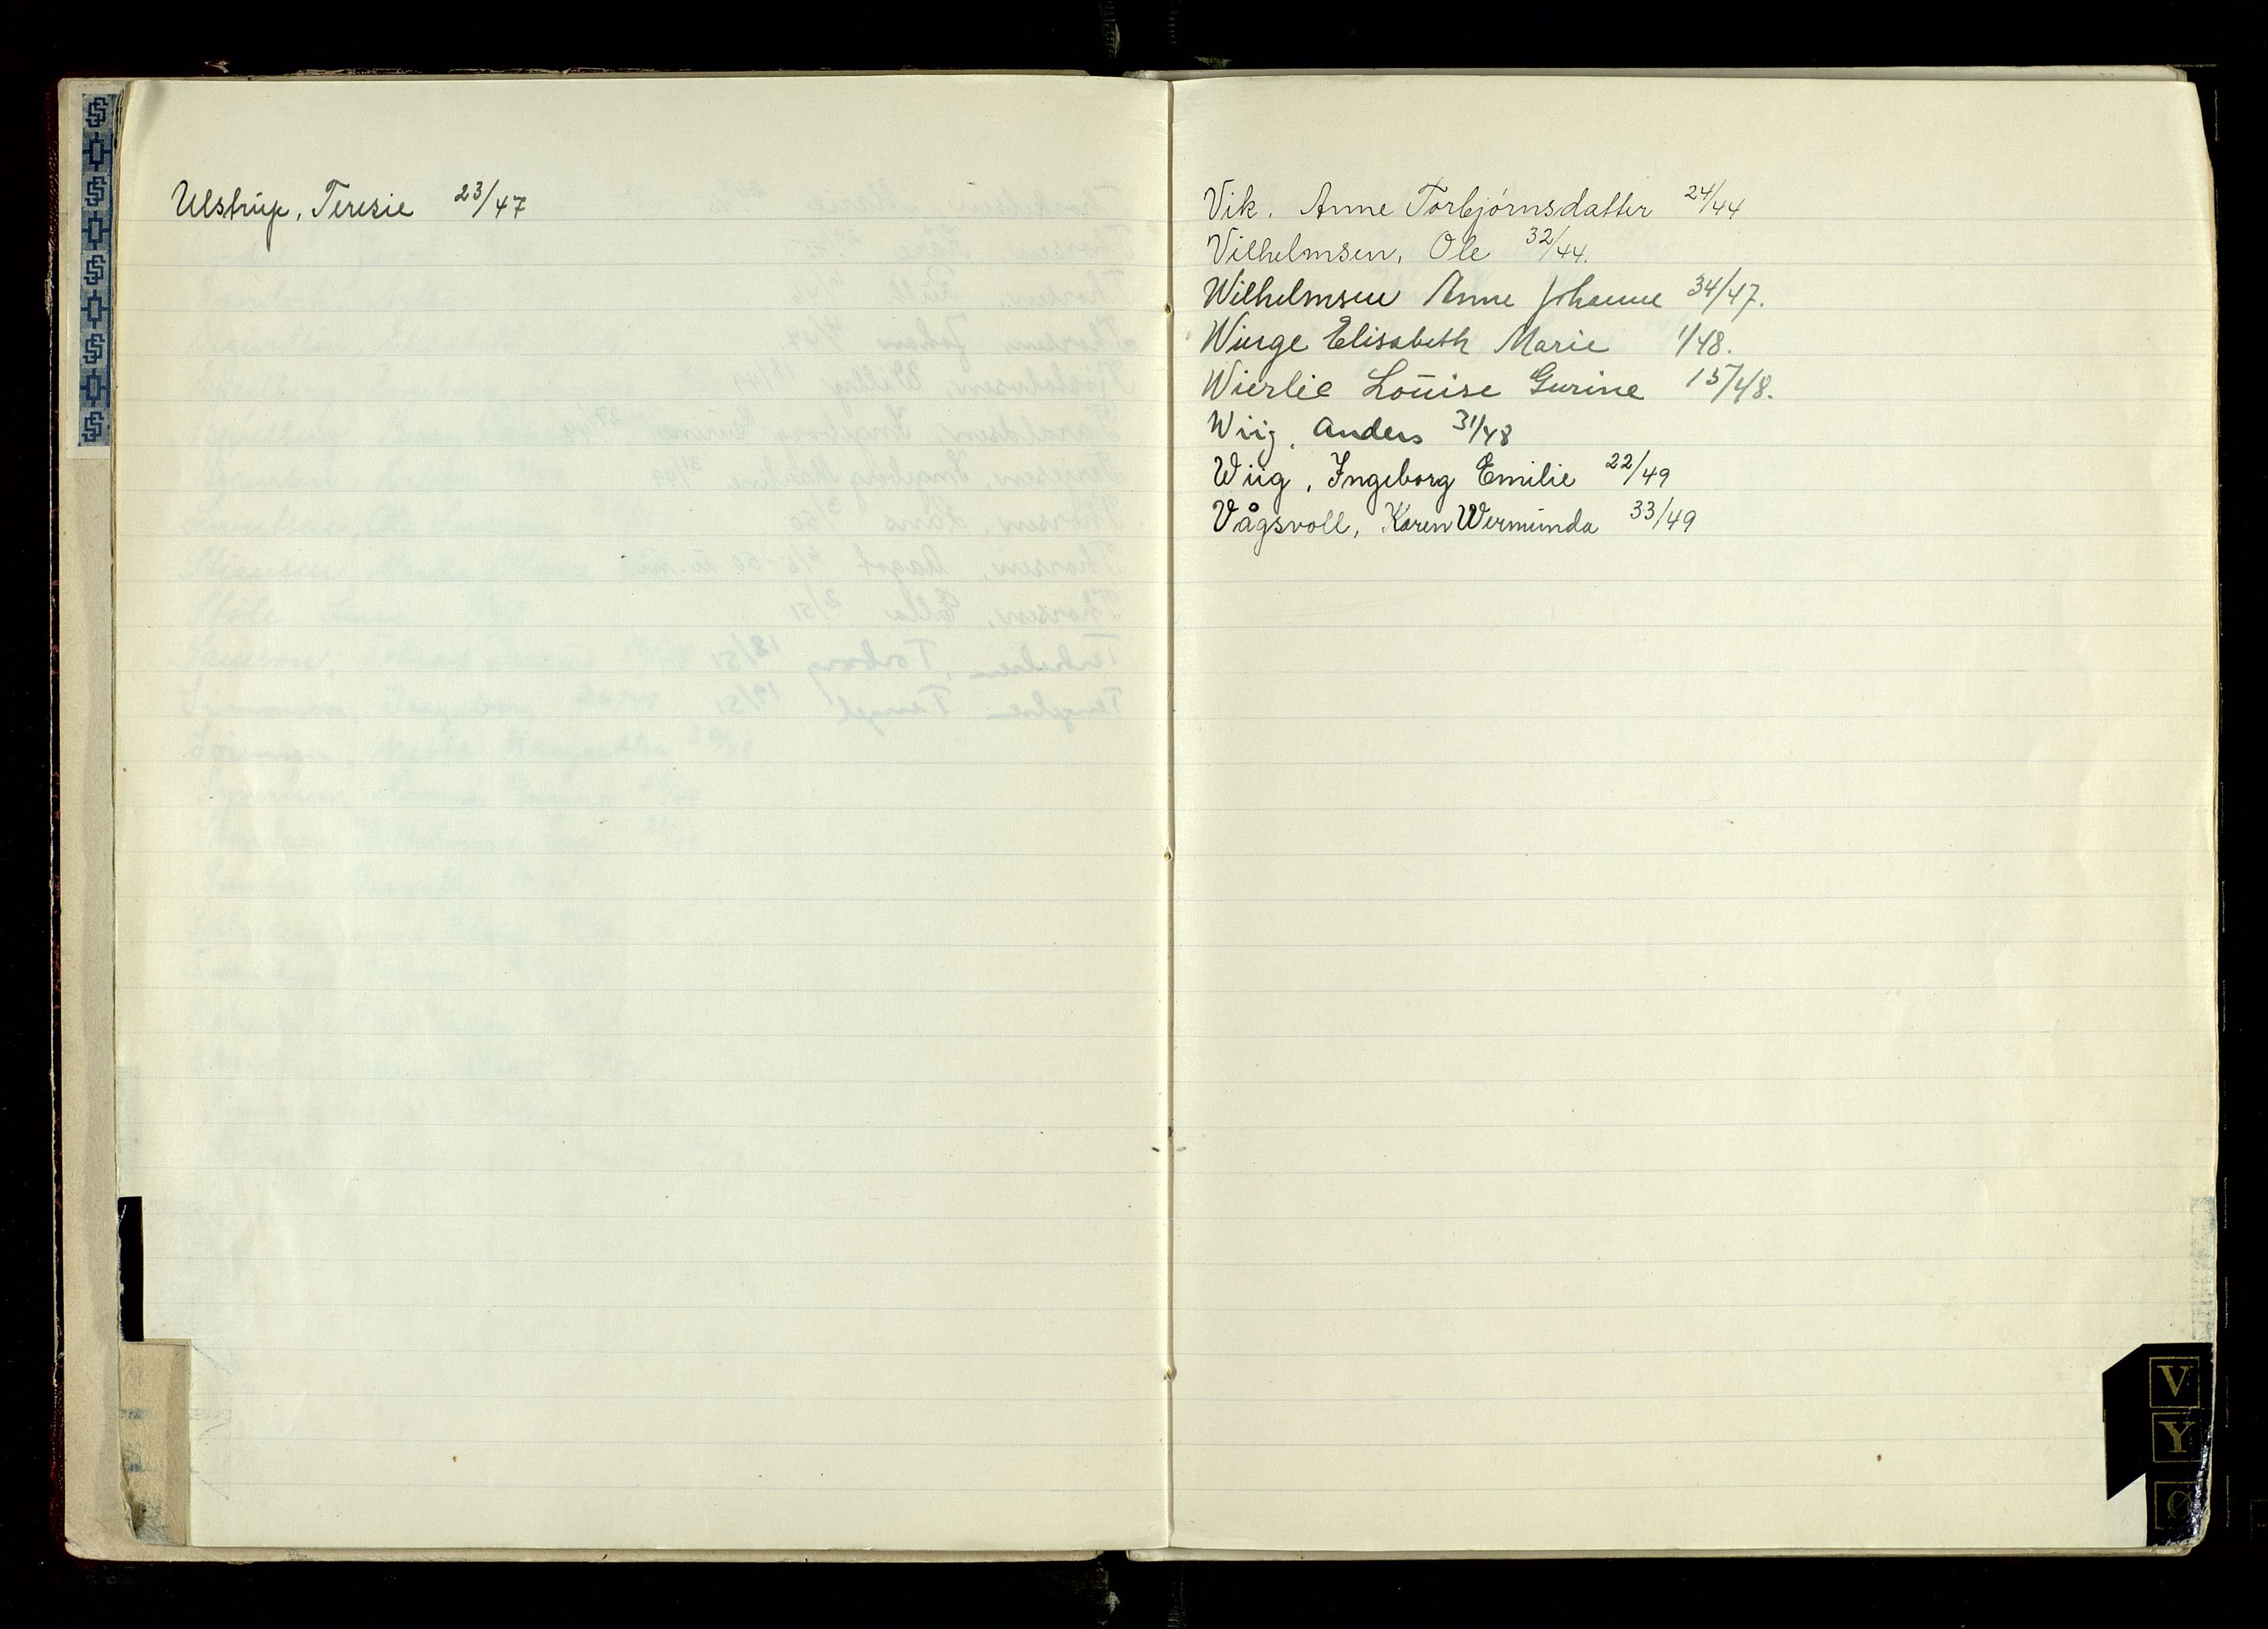 Ulstrup, Teresie 23/47
Vik. Anne Torbjörnsdatter 24/44
Vilhelmsen, Ole 32/44.
Wilhelmsen Anne Johanne 34/47.
Winge Elisabeth Marie 1/48.
Wierlie Louise Gurine 15/48.
Wiig, Anders 31/48
Wiig, Ingeborg Emilie 22/49
Vågsvoll, Karen Wermunda 33/49
V
Y